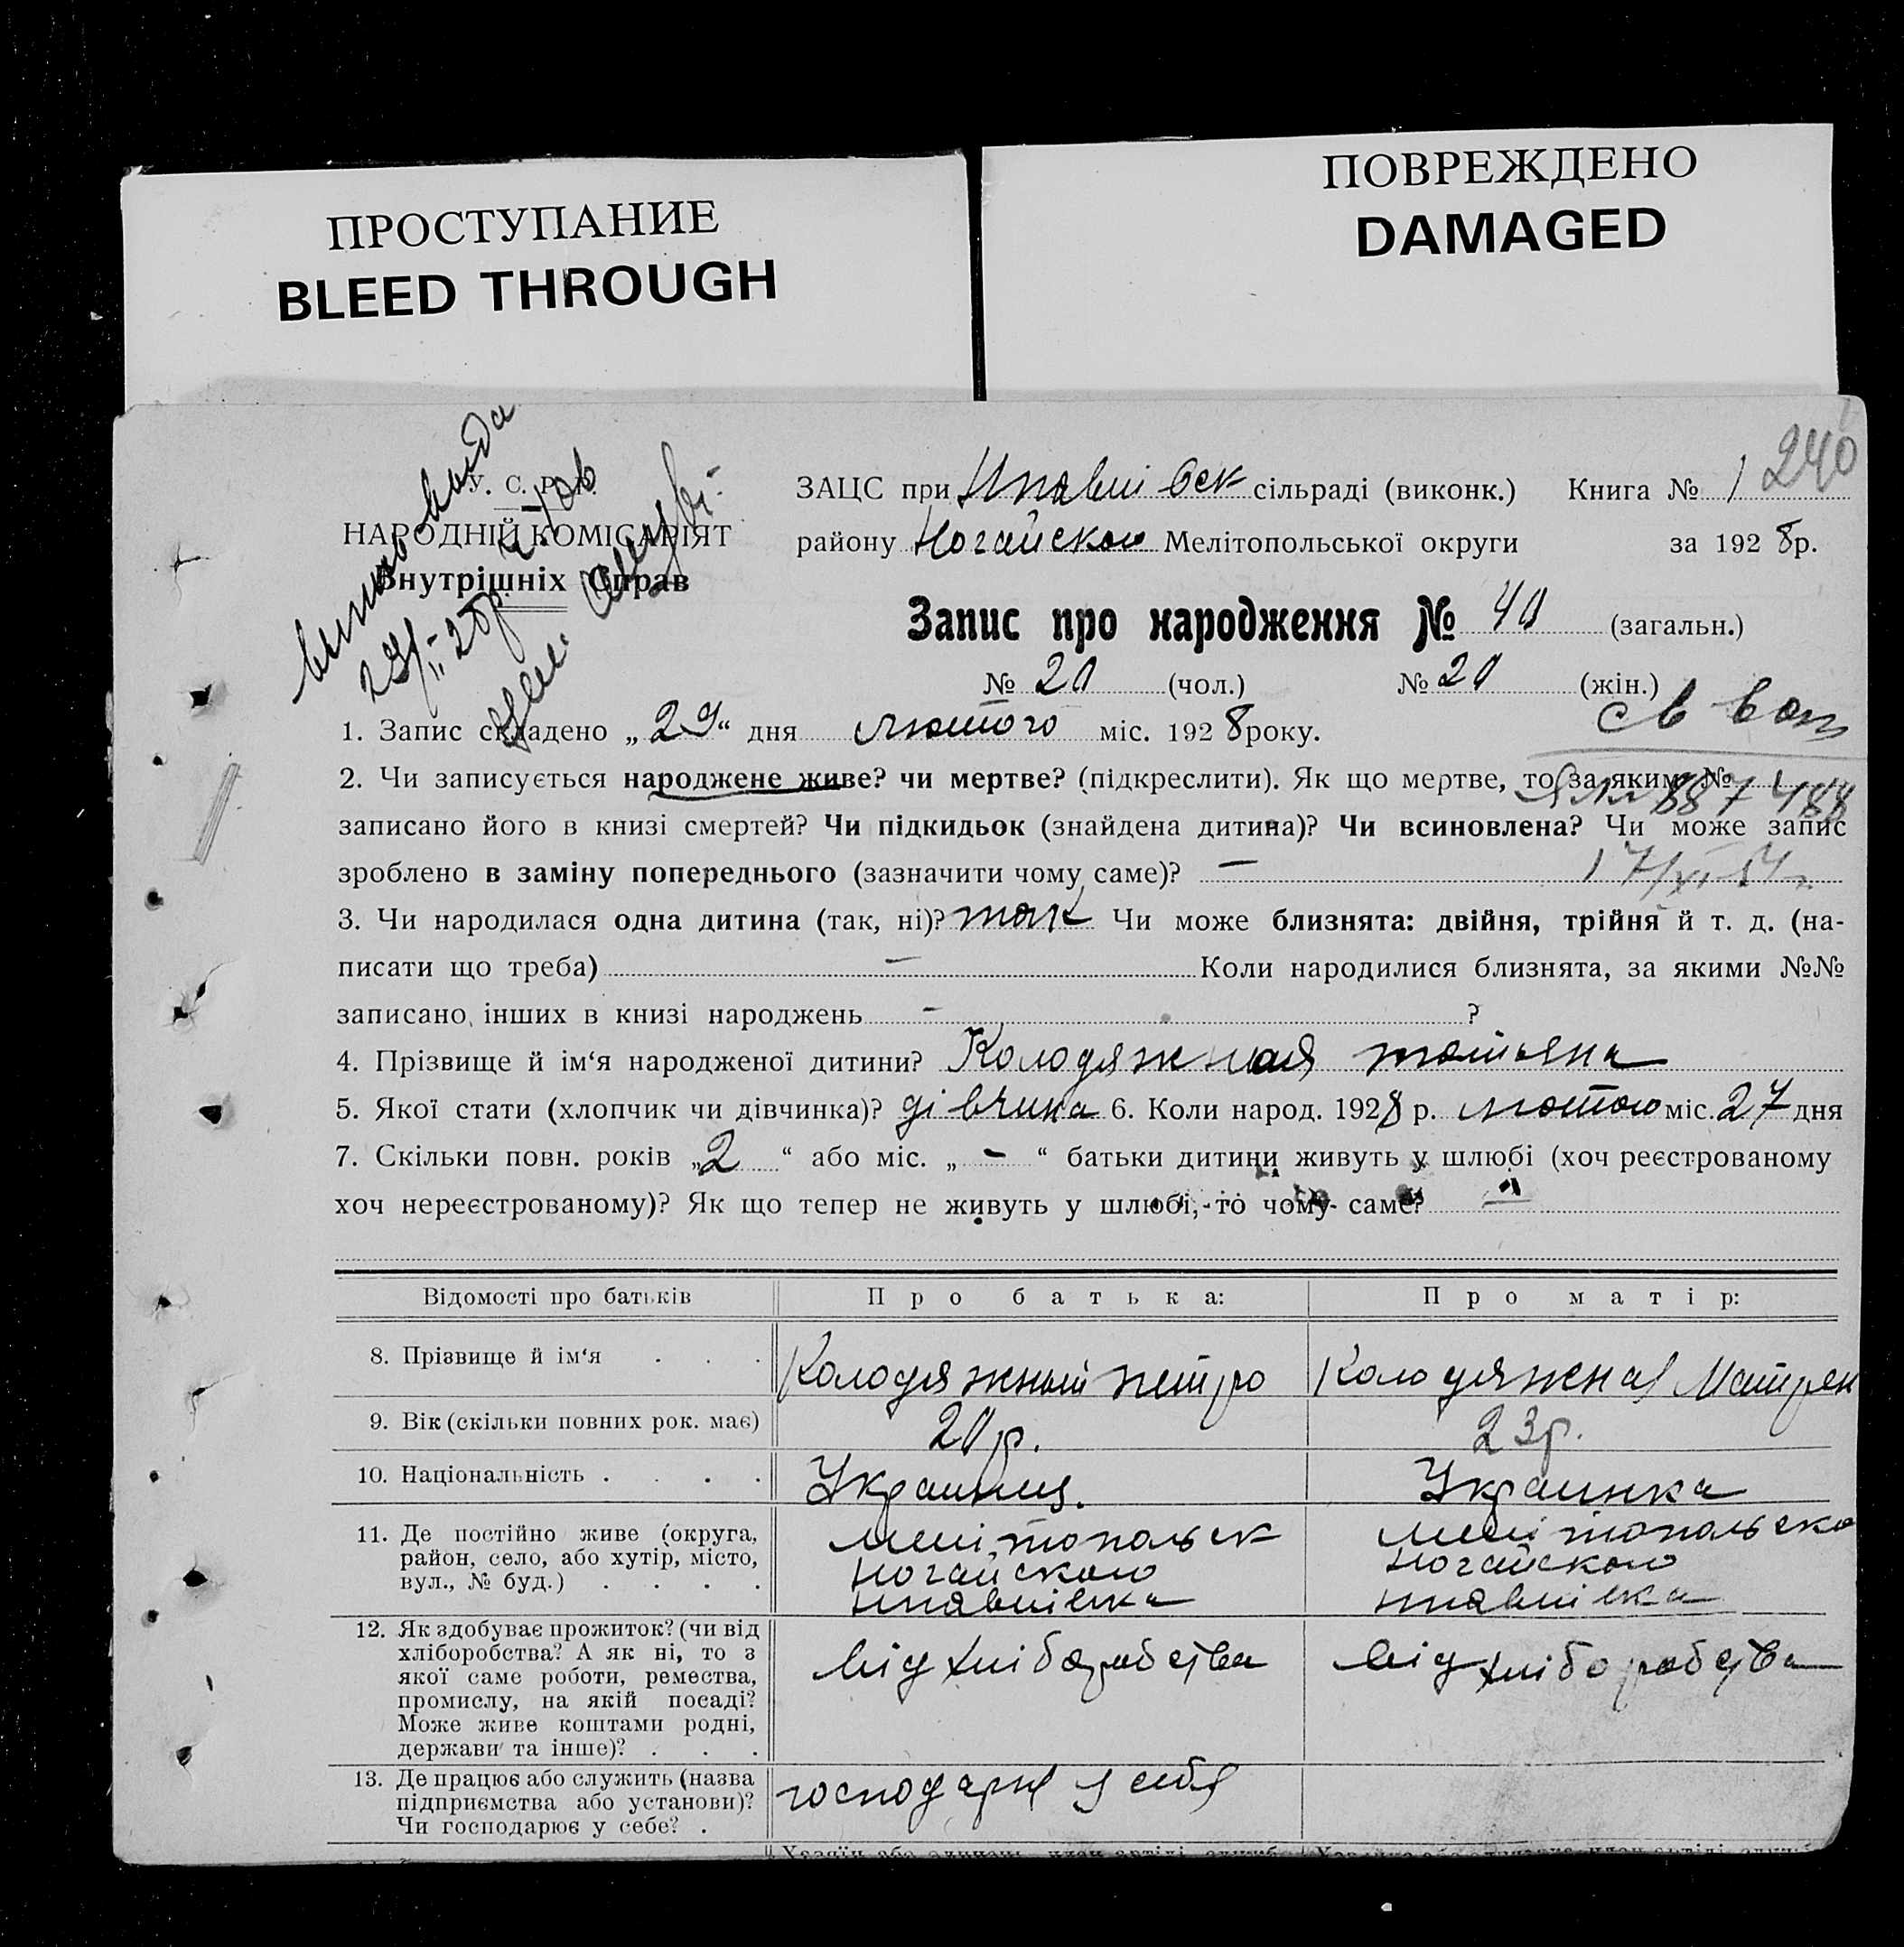 ПРОСТУПАНИЕ
BLEED THROUGH
ПОВРЕЖДЕНО
DAMAGED
240
У. С. Р. Р.
НАРОДНІЙ КОМІСАРІЯТ
Внутрішніх Справ
ЗАЦС при сільраді (виконк.) Книга № 1
району Ногайского Мелітопольської округи за 1928р.
Запис про народження № 40 (загальн.)
№ 20 (чол.) № 20 (жін.)
1. Запис складено „29“ дня лютого міс. 1928року.
2. Чи записується народжене живе? чи мертве? (підкреслити). Як що мертве, то за яким №
записано його в книзі смертей? Чи підкидьок (знайдена дитина)? Чи всиновлена? Чи може запис
зроблено в заміну попереднього (зазначити чому саме)? —
3. Чи народилася одна дитина (так, ні)? так Чи може близнята: двійня, трійня й т. д. (на-
писати що треба) — Коли народилися близнята, за якими №№
записано інших в книзі народжень — ?
4. Прізвище й ім‘я народженої дитини? Колодяжная татьяна
5. Якої стати (хлопчик чи дівчинка)? дівчина 6. Коли народ. 1928 р. лютого міс. 27 дня
7. Скільки повн. років „2“ або міс. „-“ батьки дитини живуть у шлюбі (хоч реєстрованому
хоч нереєстрованому)? Як що тепер не живуть у шлюбі, то чому саме? —
Відомості про батьків Про батька: Про матір:
8. Прізвище й ім‘я . . . Колодяжный петро Колодяжная Матрен
9. Вік (скільки повних рок. має) 20р. 23р.
10. Національність . . . . Украинец. Украинка
11. Де постійно живе (округа, мелітопольск мелітопольско
район, село, або хутір, місто, ногайского ногайского
вул., № буд.) . . . .
12. Як здобуває прожиток? (чи від від хліборобства від хліборобства
хліборобства? А як ні, то з
якої саме роботи, ремества,
промислу, на якій посаді?
Може живе коштами родні,
держави та інше)? . . .
13. Де працює або служить (назва господарює у себя
підприємства або установи)?
Чи господарює у себе? .